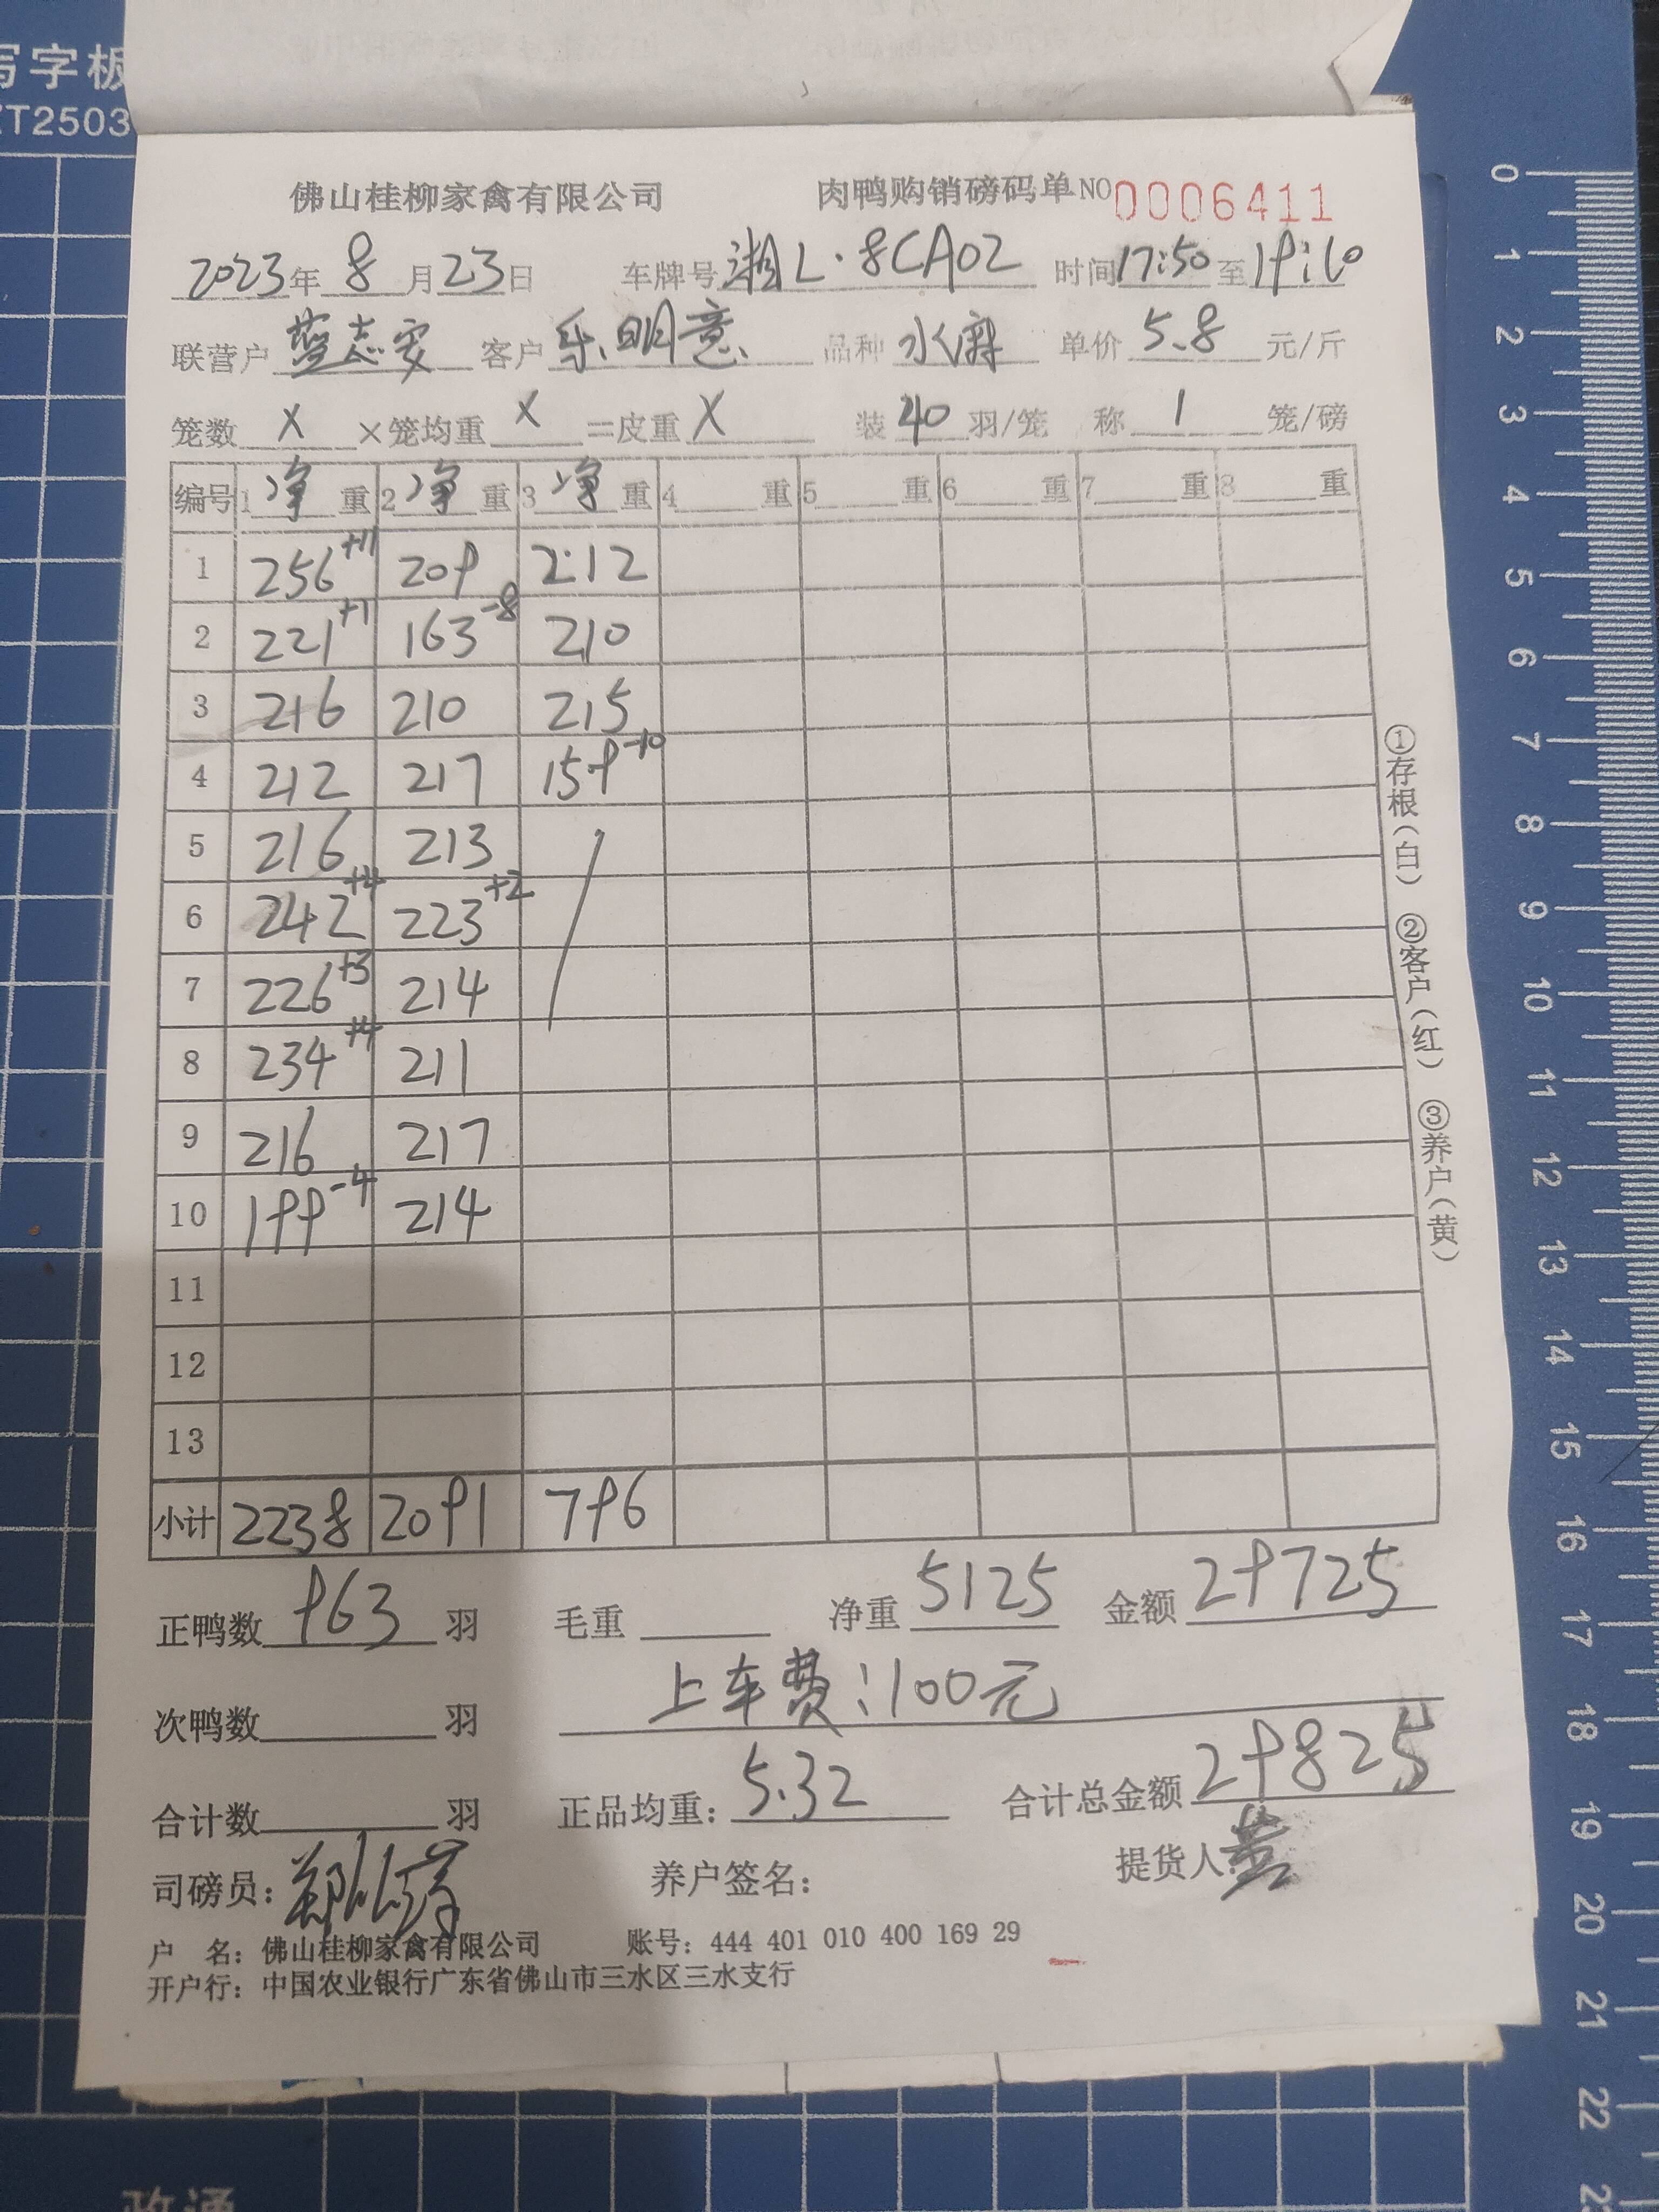 写字板
ZT2503
佛山桂柳家禽有限公司 肉鸭购销磅码单 NO 0006411
2023年8月23日 车牌号 湘L·8CA02 时间 17:50 至 19:10
联营户 蓝志安 客户 乐明意 品种 水麻 单价 5.8 元/斤
笼数 X ×笼均重 X =皮重 X 装 40 羽/笼 称 1 笼/磅
编号 1 净 重 2 净 重 3 净 重 4 重 5 重 6 重 7 重 8 重
1 256+11 209 212
2 221+1 163-8 210
3 216 210 215
4 212 217 159-10
5 216 213
6 242+4 223+2
7 226+3 214
8 234+4 211
9 216 217
10 199-4 214
11
12
13
小计 2238 2091 796
正鸭数 963 羽 毛重 净重 5125 金额 29725
次鸭数 羽 上车费:100元
合计数 羽 正品均重: 5.32 合计总金额 29825
司磅员: 郑 养户签名: 提货人: 黄
户 名: 佛山桂柳家禽有限公司 账号: 444 401 010 400 169 29
开户行: 中国农业银行广东省佛山市三水区三水支行
①存根(白) ②客户(红) ③养户(黄)
0 1 2 3 4 5 6 7 8 9 10 11 12 13 14 15 16 17 18 19 20 21 22
政通